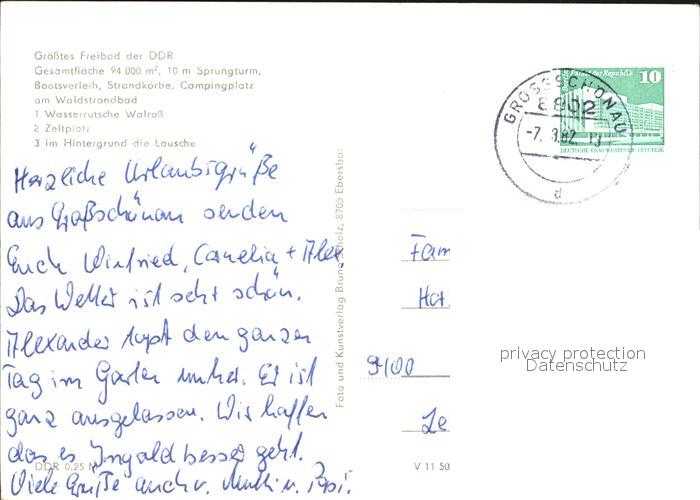 Größtes Freibad der DDR
Gesamtfläche 94 000 m², 10 m Sprungturm,
Bootsverleih, Strandkörbe, Campingplatz
am Waldstrandbad
1 Wasserrutsche Walroß
2 Zeltplatz
3 im Hintergrund die Lausche
Herzliche Urlaubsgrüße
aus Großschönau senden
Euch Winfried, Cornelia + Alex.
Das Wetter ist sehr schön.
Alexander topt den ganzen
Tag im Garten umher. Er ist
ganz ausgelassen. Wir hoffen
das es Ingold besser geht.
Viele Grüße auch v. Mutti u. Papi.
DDR 0,25 M
V 11 50
Foto und Kunstverlag Bruno Scholz, 8705 Ebersbac
Palast der Republik 10
DEUTSCHE DEMOKRATISCHE REPUBLIK
GROSSSCHÖNAU
8802
-7. 8.82
d
Fam
9100
privacy protection
Datenschutz